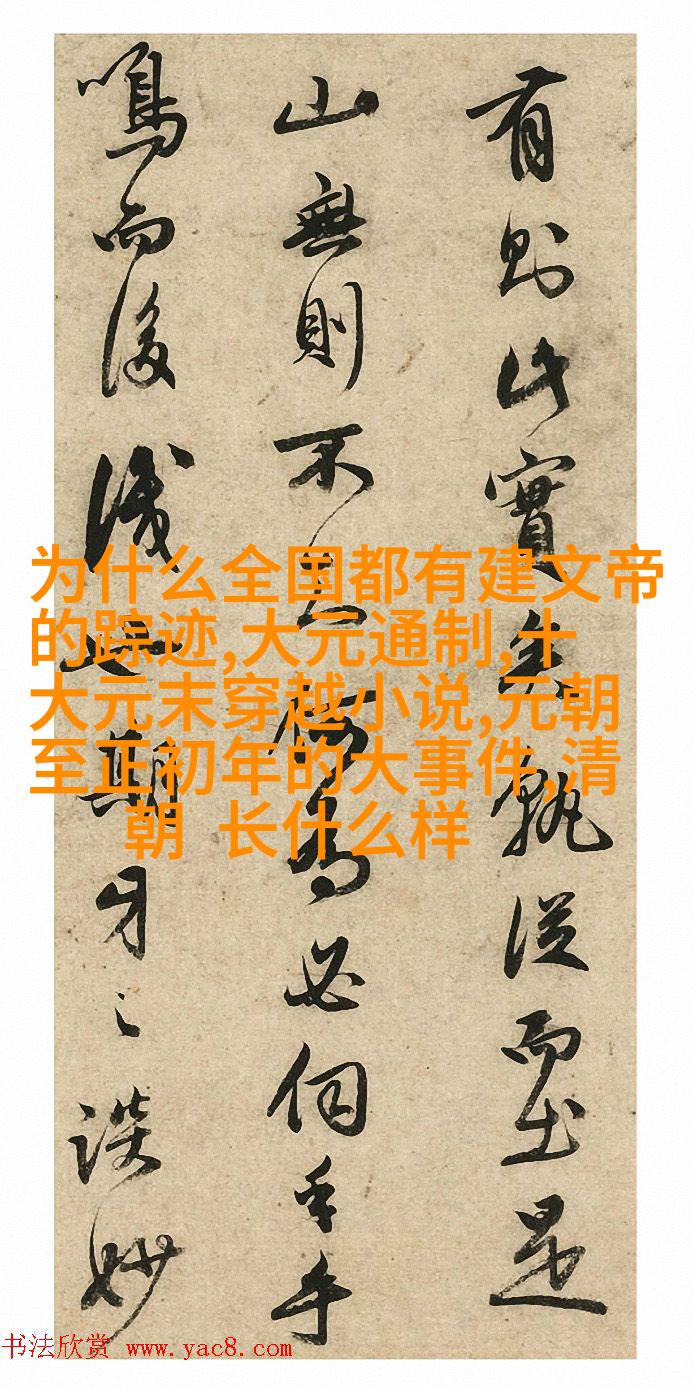 有則此實矣孰從而出是
山無則不為必伺手
鳴而後識期牙之談妙
为什么全国都有建文帝
的踪迹,大元通制,十
大元末穿越小说,元朝
至正初年的大事件,清
朝 长什么样
书法欣赏 www.yac8.com